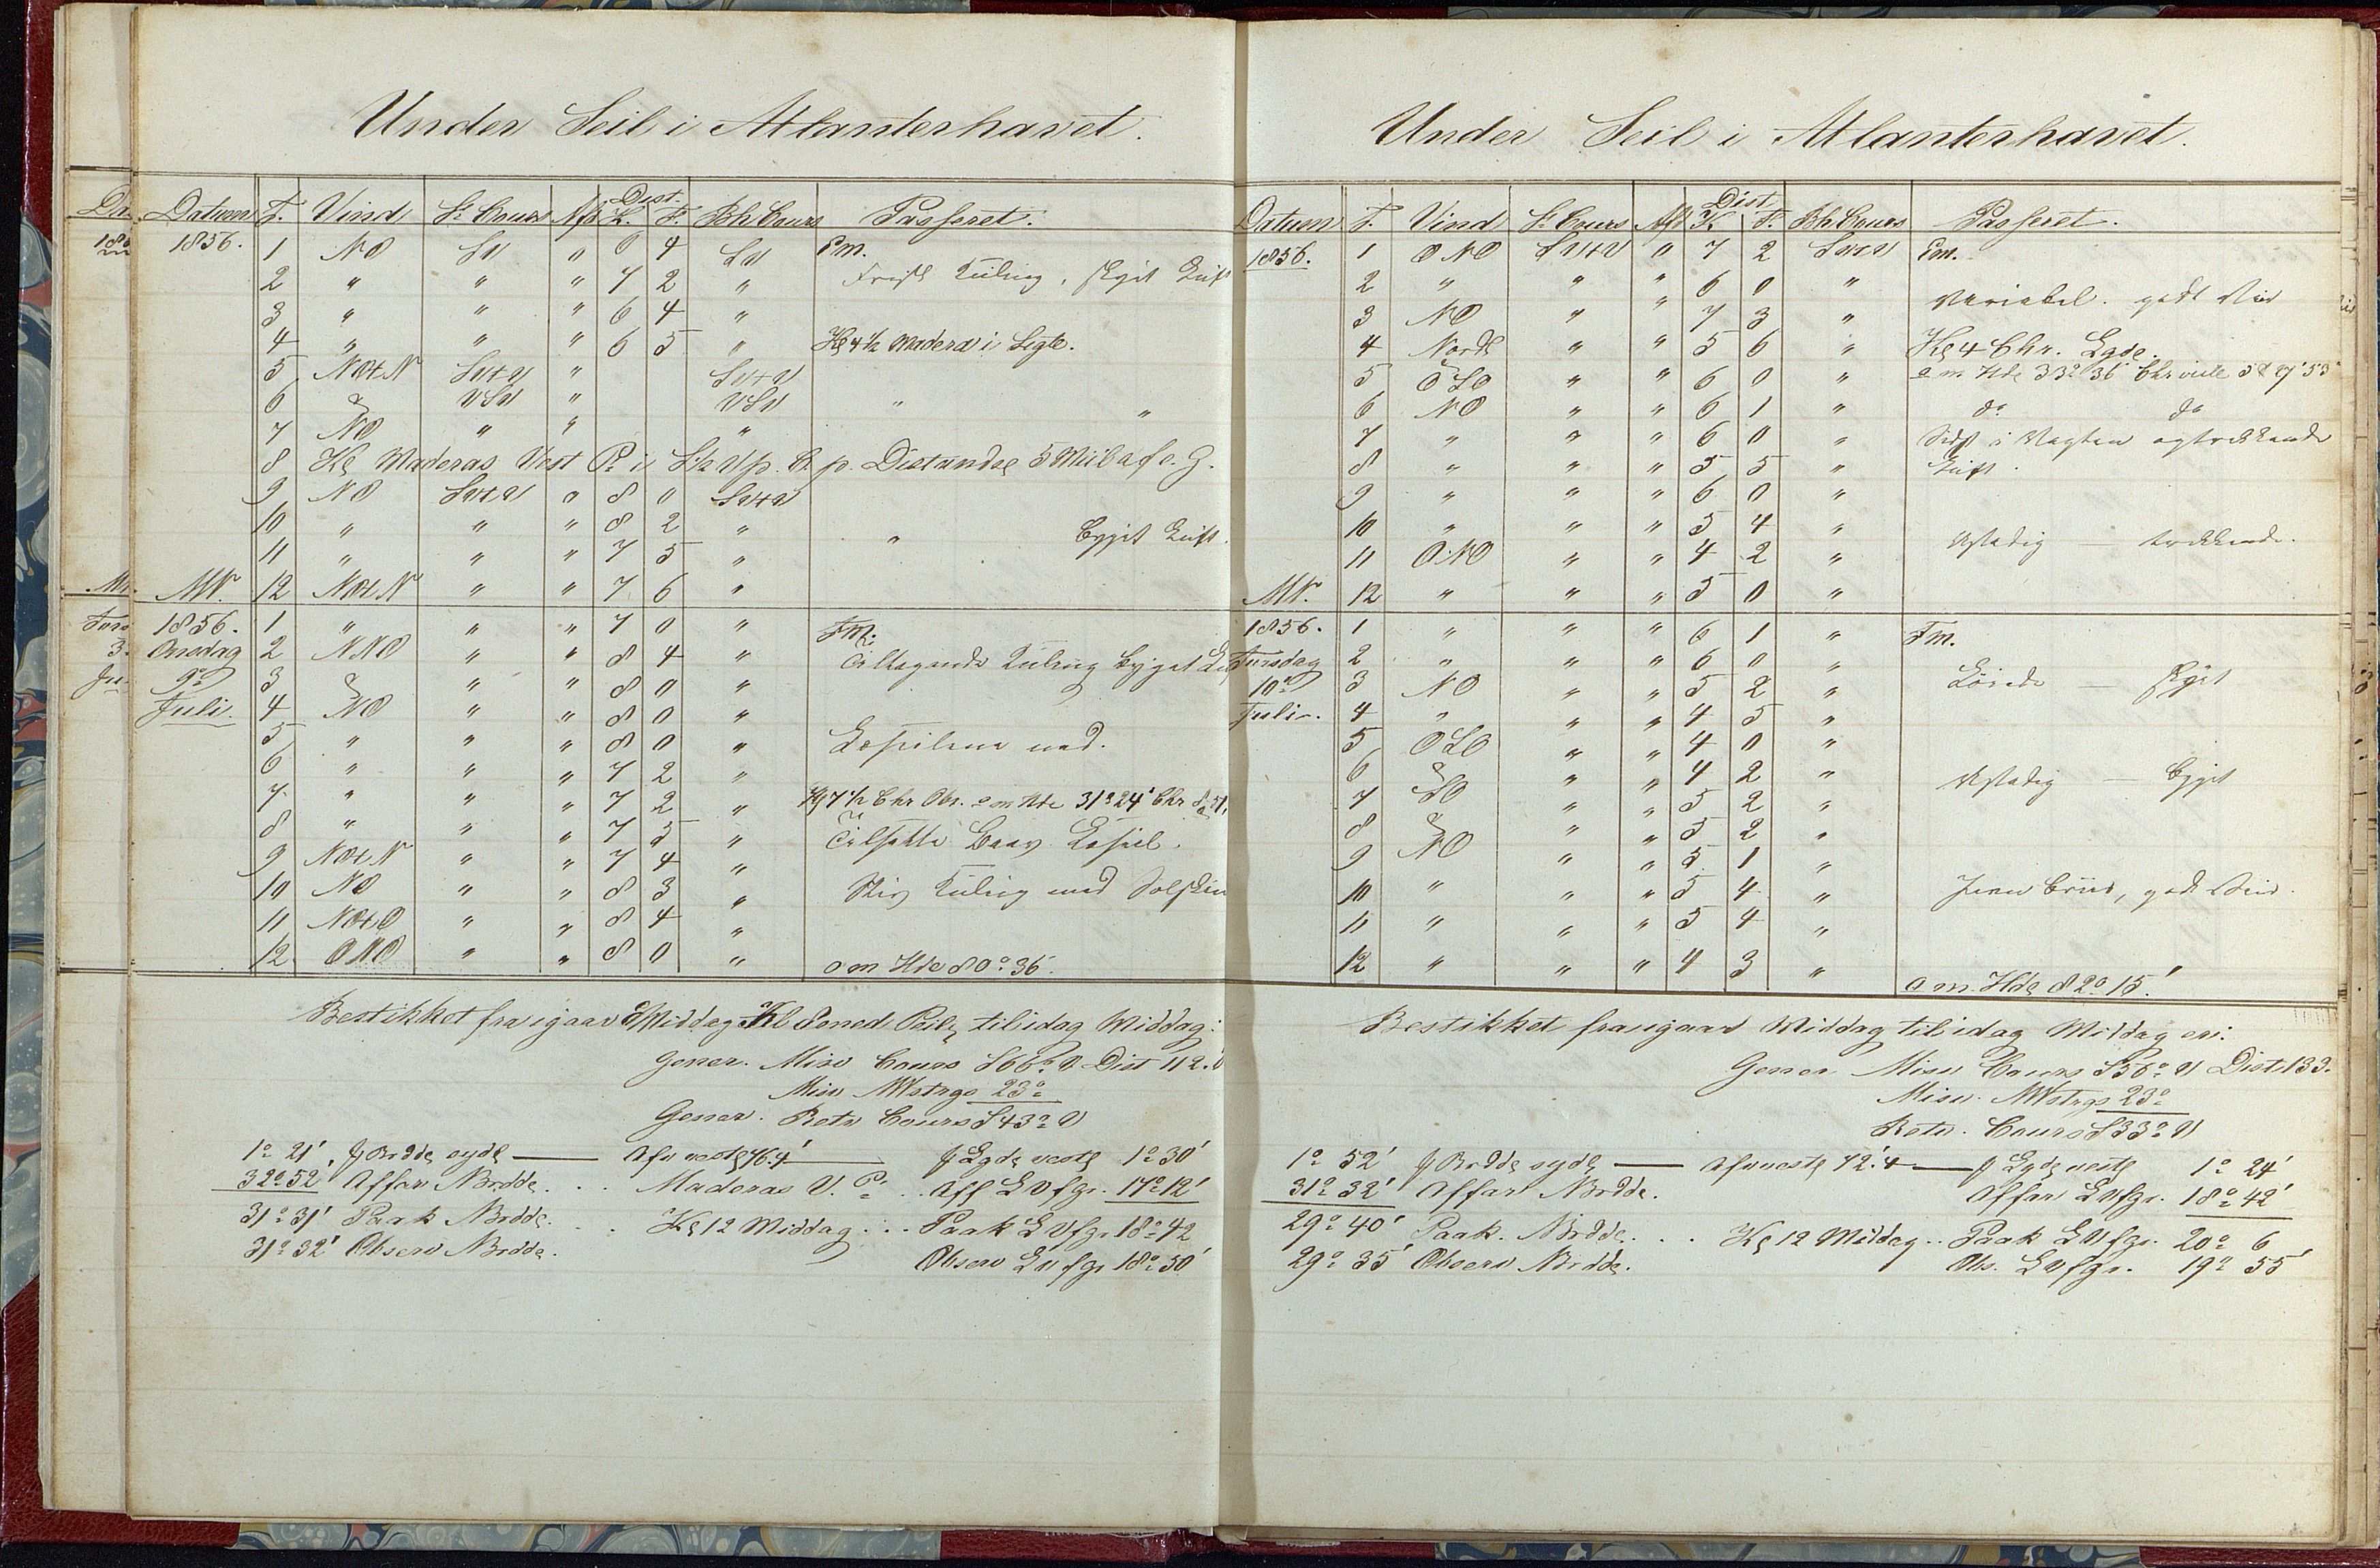 Under Seil i Atlanterhavet.
Datum T. Vind St. Cours Afd Dist. K. F. Bh Cours Passeret.
1856. 1 NO SV " 6 4 SV Em.
2 " " " 7 2 " Frisk Kuling,
3 " " " 6 4 "
4 " " " 6 5 " Kl 4½ Madera i Sigte.
5 NOtN SVtV " SVtV
6 & VSV " VSV " "
7 NO " " "
8 Kl Maderas Vest Pt i Distandse 5 Miil
9 NO SVtV " 8 0 SVtV
10 " " " 8 2 " " Bygit Luft.
11 " " " 7 5 "
MN. 12 NOtN " " 7 6 "
1856. 1 " " " 7 0 " Fm.
Onsdag 2 NNO " " 8 4 " Tiltagende Kuling Byget
9de 3 & " " 8 0 "
Juli. 4 NO " " 8 0 "
5 " " " 8 0 " Læseilene ned.
6 " " " 7 2 "
7 " " " 7 2 " Kl 7½ Chr Obs. o m Hde 31° 24' Chr
8 " " " 7 5 " Tilsatte Læseil.
9 NOtN " " 7 4 "
10 NO " " 8 3 " Stiv Kuling med Solskin
11 NOtO " " 8 4 "
12 ONO " " 8 0 " o m Hde 80° 36'.
Bestikket fra igaar Middag Kl Peil. til idag Middag:
Gener. Misv Cours S 66° V Dist 112.
Misv NVstrgs 23°
Gener. Retv Cours S 43° V
1° 21' f Brdde sydl — Afv vestl 76.4' — f Lgde vestl 1° 30'
32° 52' Affar Nbrdde. . . Maderas V. Pt . . Aff L V fgr. 17° 12'
31° 31' Paak Nbrdde. . . Kl 12 Middag . . . Paak L V fgr 18° 42
31° 32' Observ Nbrdde. Observ L V fgr 18° 50'
Under Seil i Atlanterhavet.
Datum T. Vind St. Cours Afd Dist K F. Bh Cours Passeret.
1856. 1 ONO SVtV " 7 2 SVtV Em.
2 " " " 6 0 "
3 NO " " 7 3 " Variabel. godt Veir
4 Nordl " " 5 6 " Kl 4 Chr. Lgde.
5 & OSO " " 6 0 " o m Hde 33° 36' Chr viste
6 NO " " 6 1 " do do
7 " " " 6 0 " Sidst i Vagten optrekkende
8 " " " 5 5 " Luft.
9 " " " 6 0 "
10 " " " 5 4 "
11 ONO " " 4 2 " Ustadig — trekkende.
MN. 12 " " " 5 0 "
1856. 1 " " " 6 1 " Fm.
Torsdag 2 " " " 6 0 "
10de 3 NO " " 5 2 "
Juli. 4 " " " 4 5 "
5 OSO " " 4 0 "
6 & " " 4 2 " Ustadig — Bygit
7 SO " " 5 2 "
8 & " " 5 2 "
9 NO " " 5 1 "
10 " " " 5 4 " Jevn Briis, godt Veir.
11 " " " 5 4 "
12 " " " 4 3 " o m. Hde 82° 15'.
Bestikket fra igaar Middag til idag Middag er:
Gener Misv Cours S 56° V Dist. 133.
Misv. NVstrgs 23°
Retv. Cours S 33° V
1° 52' f Brdde sydl — Afv vestl 72'.4 — f Lgde vestl 1° 24'
31° 32' Affar Nbrdde. Affar L V fgr. 18° 42'
29° 40' Paak. Nbrdde. . . Kl 12 Middag . . Paak L V fgr. 20° 6'
29° 35' Observ Nbrdde. Obs. L V fgr. 19° 55'